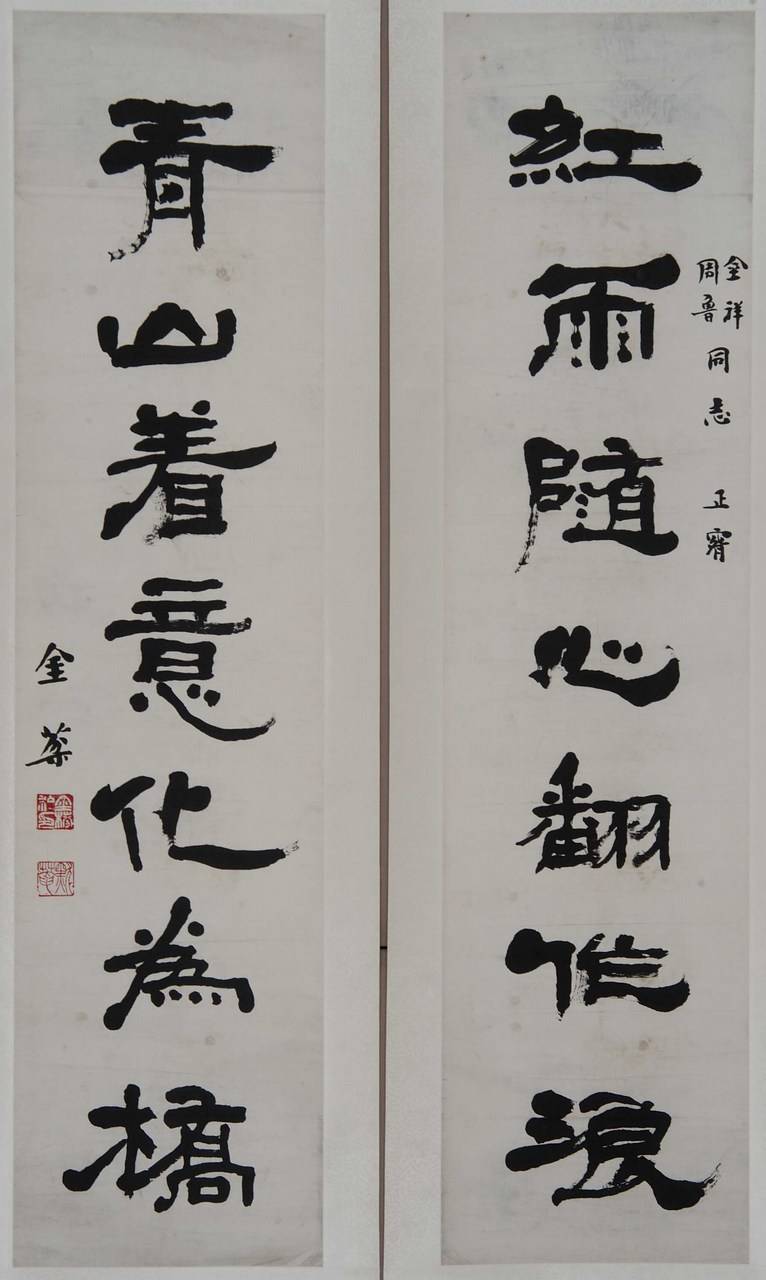 紅雨隨心翻作浪
金祥
周魯
同志 正有
青山着意化為橋
金棻